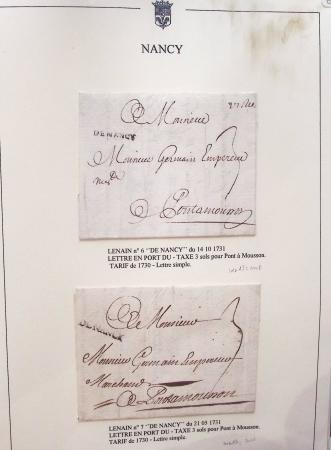 NANCY
A Monsieur
DE NANCY
Monsieur Germain Empereur
md
A Pontamousson
3
LENAIN n° 6 "DE NANCY" du 14 10 1731
LETTRE EN PORT DU - TAXE 3 sols pour Pont à Mousson.
TARIF de 1730 - Lettre simple.
A Monsieur
DE NANCY
Monsieur Germain Empereur
Marchand
A Pontamousson
3
LENAIN n° 7 "DE NANCY" du 21 03 1731
LETTRE EN PORT DU - TAXE 3 sols pour Pont à Mousson.
TARIF de 1730 - Lettre simple.